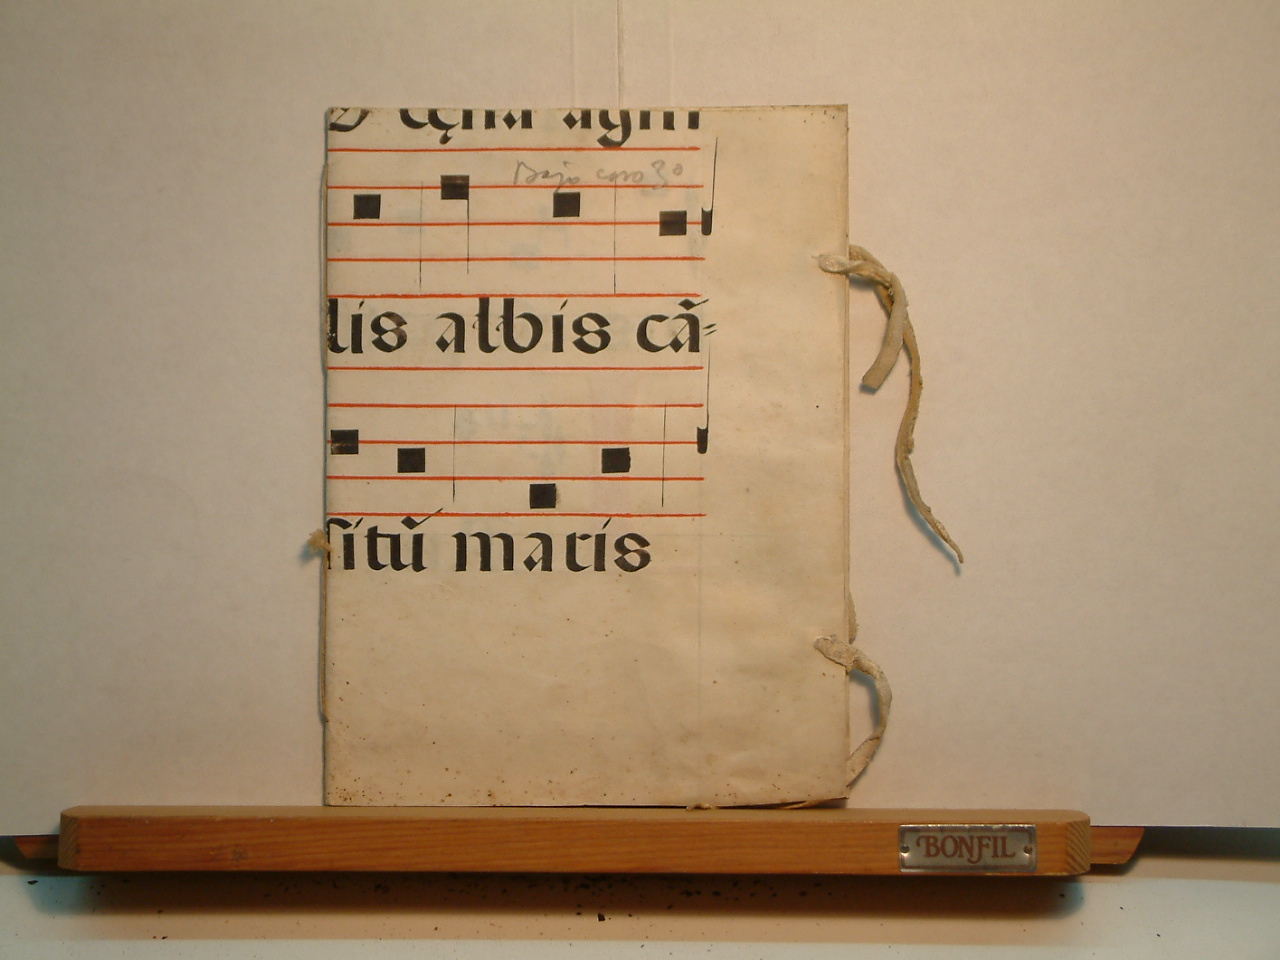 cęna agni
Bajo coro 3º
lis albis cã-
sitũ maris
BONFIL